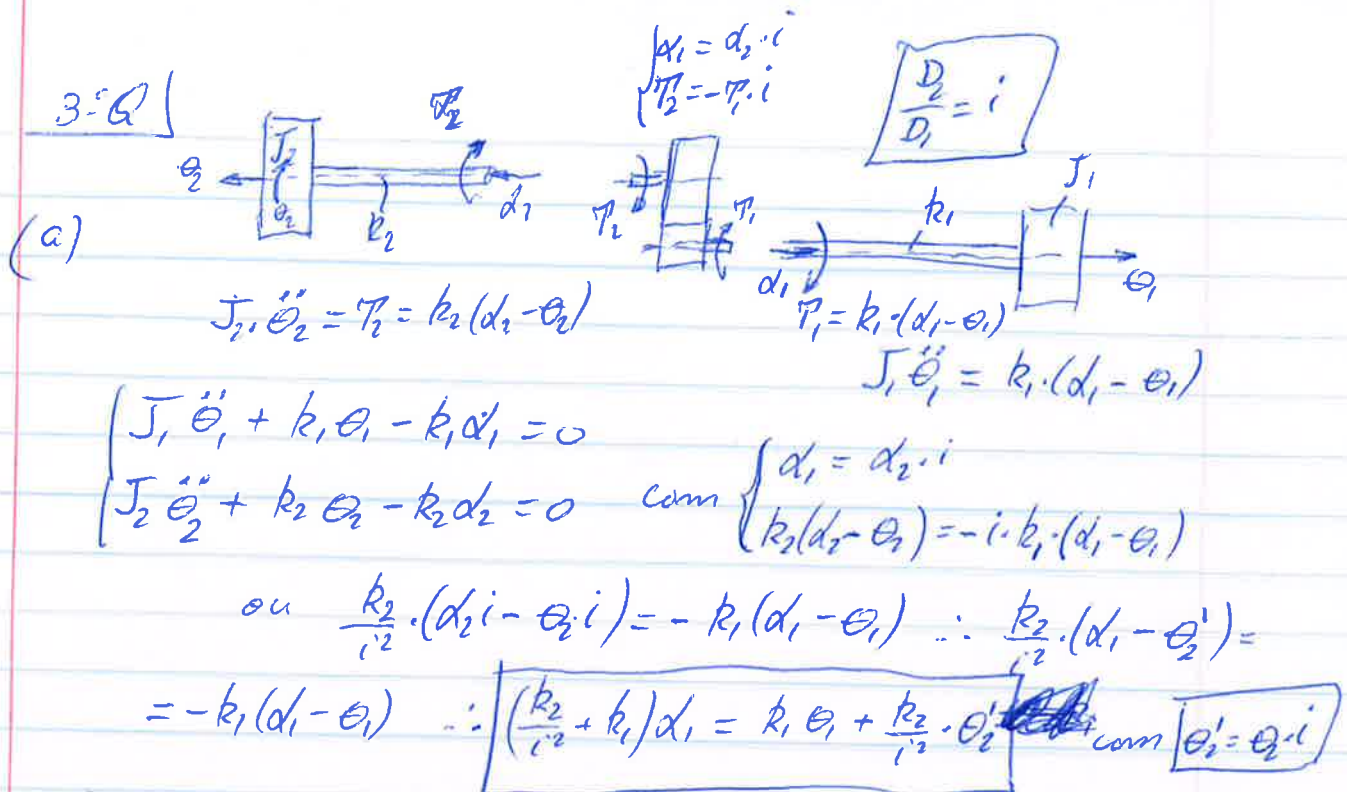 3ª Q
α₁ = α₂·i
T₂ = -T₁·i
D₂/D₁ = i
(a)
θ₂ J₂ θ₂ k₂ T₂ α₂
T₂ T₁
α₁ k₁ J₁ θ₁
J₂·θ̈₂ = T₂ = k₂(α₂-θ₂)
T₁ = k₁·(α₁-θ₁)
J₁θ̈₁ = k₁·(α₁-θ₁)
J₁θ̈₁ + k₁θ₁ - k₁α₁ = 0
J₂θ̈₂ + k₂θ₂ - k₂α₂ = 0 com
α₁ = α₂·i
k₂(α₂-θ₂) = -i·k₁·(α₁-θ₁)
ou k₂/i²·(α₂i - θ₂·i) = -k₁(α₁-θ₁) ∴ k₂/i²·(α₁-θ₂') =
= -k₁(α₁-θ₁) ∴ (k₂/i² + k₁)α₁ = k₁θ₁ + k₂/i²·θ₂' com θ₂' = θ₂·i